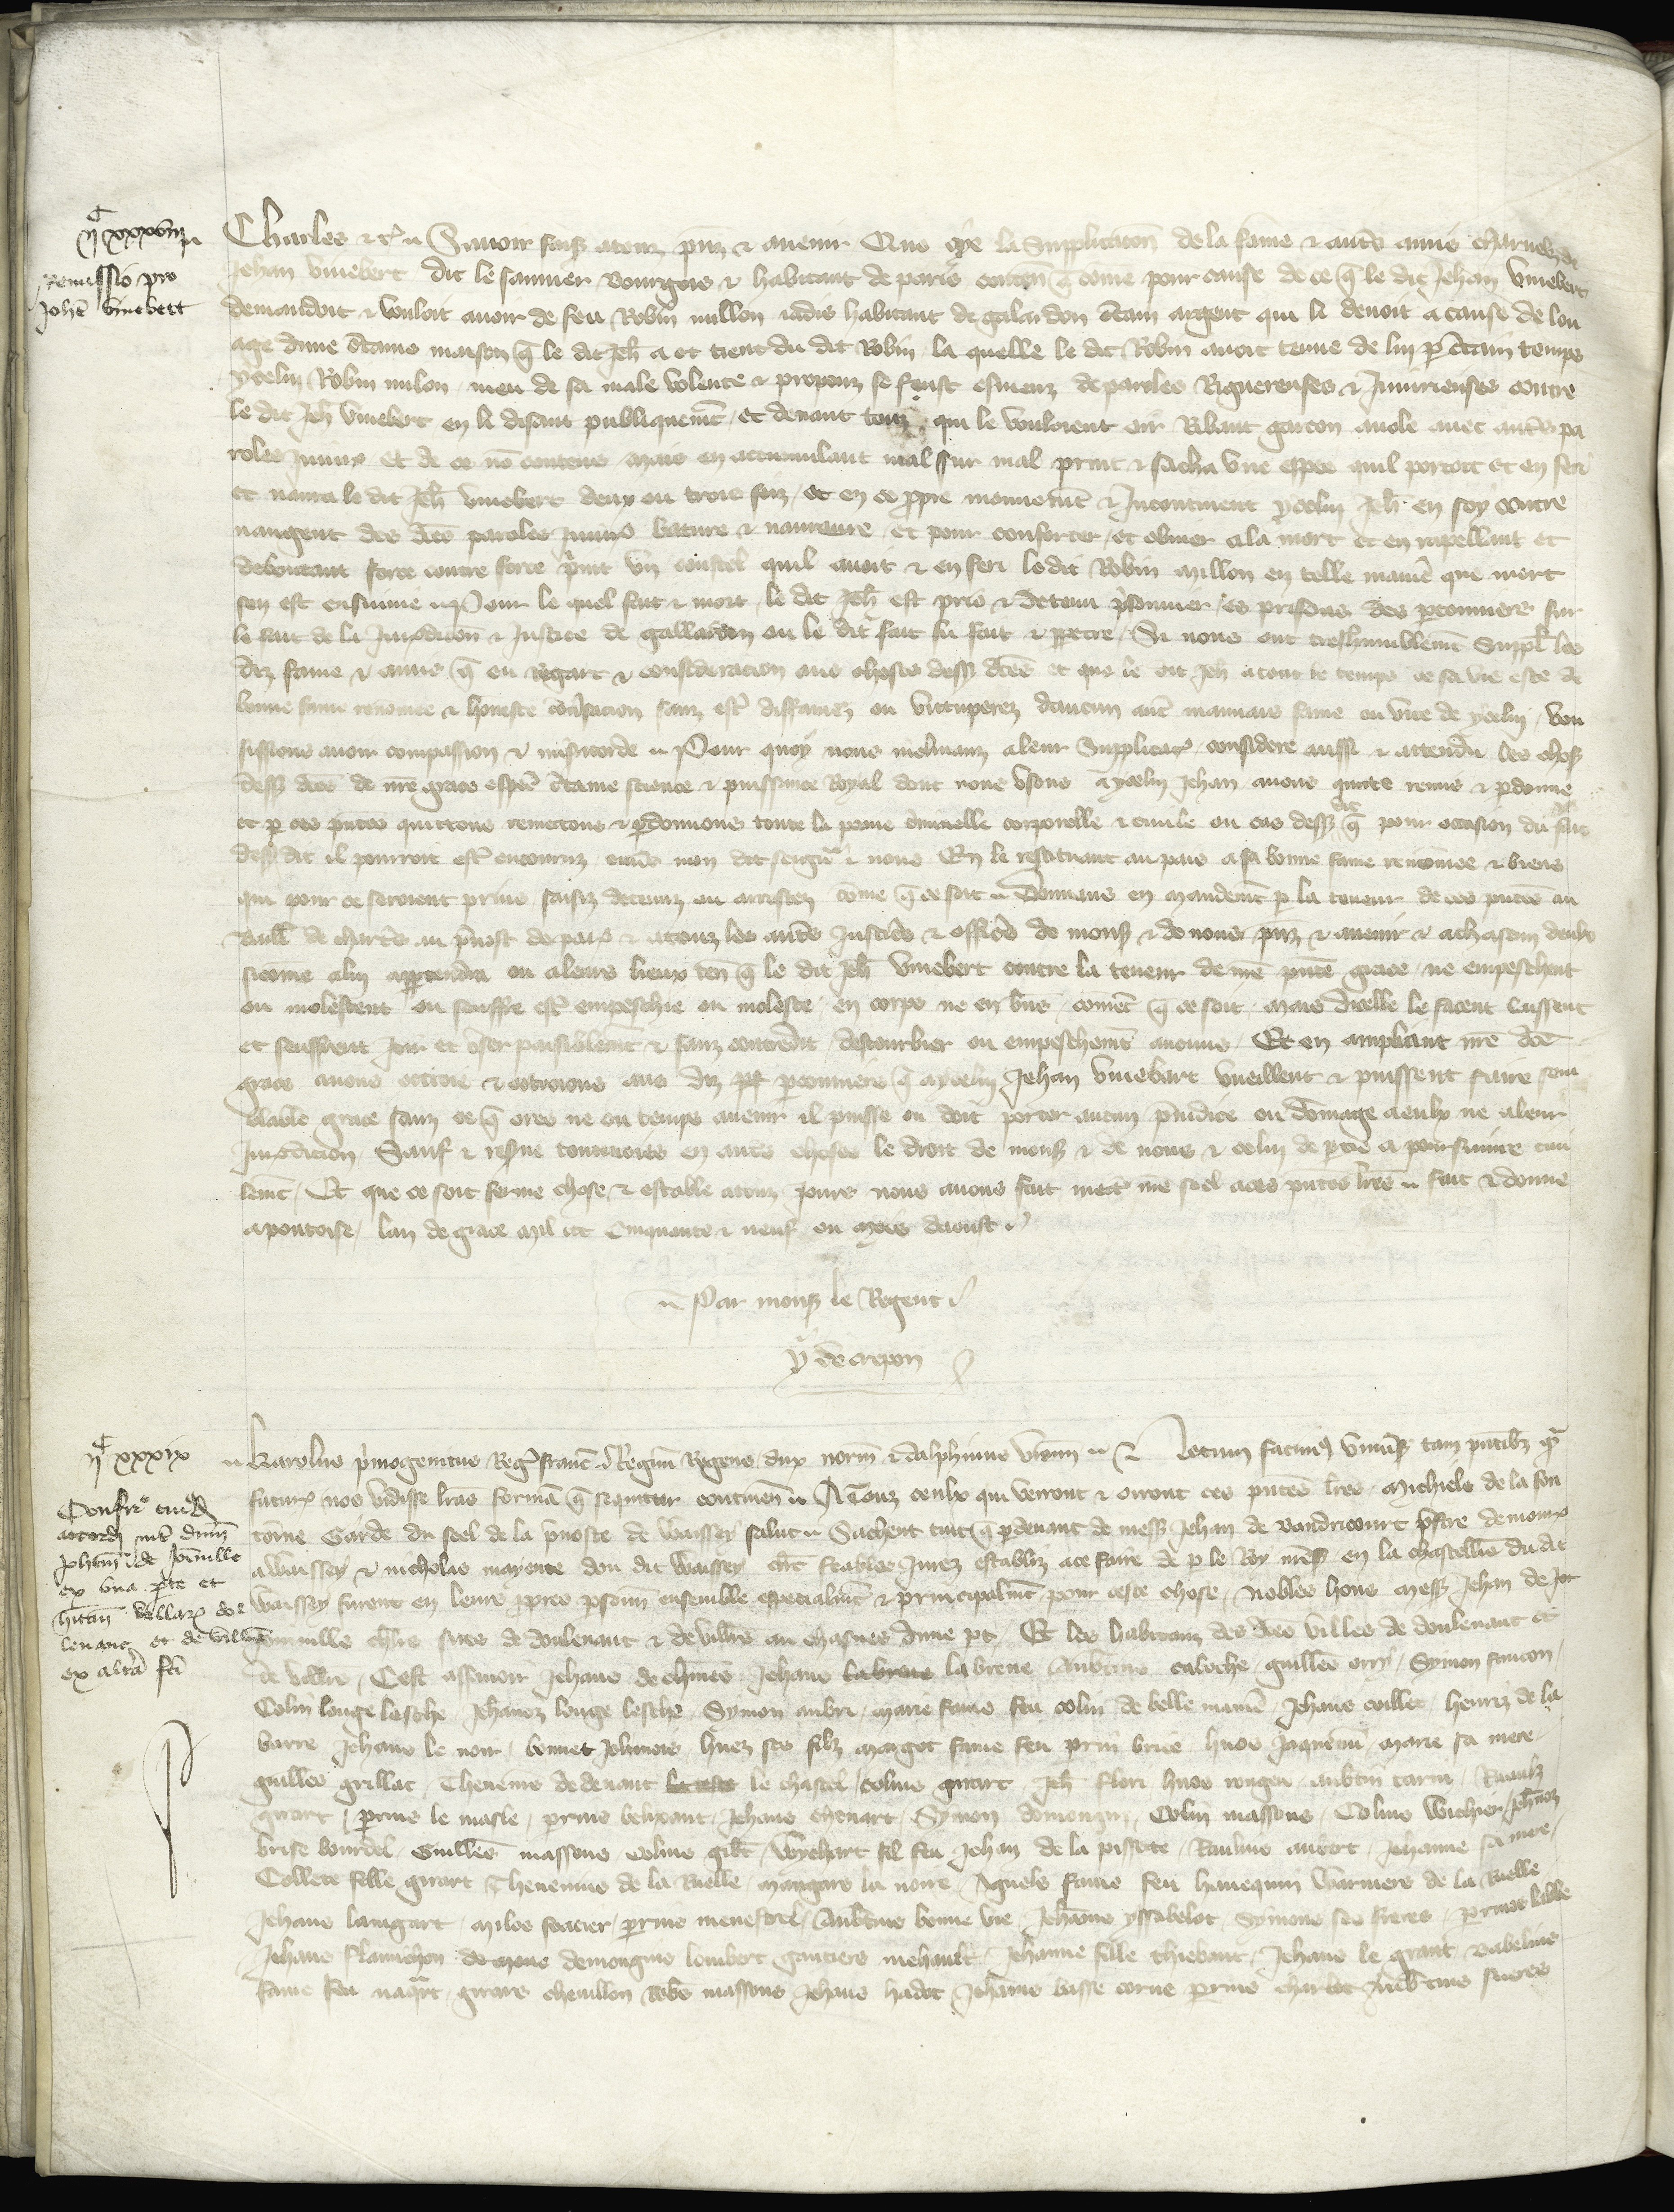 IIc xxxviii
Remissio pro
Johe vinebert
Charles etc. Savoir faiz a touz prez et avenir Que oye la Supplicacon de la fame et autres amis charnelz de
Jehan vinebert dit le saunier bourgois et habitant de paris conten q come pour cause de ce q le dit Jehan vinebert
demandoit et vouloit avoir de feu Robin millon iadis habitant de galardon certain argent qui li devoit a cause de lou
age dune certaine maison q le dit Jeh a et tient du dit Robin la quelle le dit Robin avoit tenue de lui p certain temps
ycelui Robin milon meu de sa male volente et propouz se feust esmeuz de paroles Riguereuses et Iniurieuses contre
le dit Jeh vinebert en li disant publiquemt et devant touz qui le vouloient oir Ribaut garcon avole avec autres pa
roles iniur et de ce no contens mais en accumulant mal sur mal print et sacha une espee quil portoit et en feri
et navra le dit Jeh vinebert deux ou trois foiz et en ce ppre mouvemt et Incontinent ycelui Jeh en soy contre
vangent des dtes paroles iniurs bature et navreure et pour conforter et obvier a la mort et en rapellant et
deboutant force contre force print un coustel quil avoit et en feri ledit Robin millon en telle manie que mort
sen est ensuivie Pour le quel fait et mort le dit Jeh est pris et detenu prisonnier es prisons des parconniers sur
le fait de la Juridicon et Justice de gallardon ou le dit fait fu fait et ppetre Si nous ont treshumblemt Suppl les
diz fame et amis q eu regart et consideracion aus choses dess dtes et que le dit Jeh a tout le temps de sa vie este de
bonne fame renomee et honeste conversacion sanz estre diffamez ou vituperez daucun autre mauvais fame ou vice de ycelui vou
sissions avoir compassion et misericorde Pour quoy nous inclinanz a leur Supplicacon considere aussi et attendu les choses
dess dtes de nre grace especial certaine science et puissance Royal dont nous usons a ycelui Jehan avons quicte remis et pdonne
et p ces pntes quittons remettons et pdonnons toute la peine criminelle corporelle et civile ou cas dess dit q pour occasion du fait
dess dit il pourroit estre encouruz envers mon dit seigneur et nous En le restituant au pais a sa bonne fame renomee et biens
qui pour ce seroient prins saisiz detenuz ou arrestez come q ce soit Donnans en mandemt p la teneur de ces pntes au
Baill de chartres au prevost de paris et a touz les autres Justiciers et officiers de mons et de nous prez et avenir et a chascun deulx
sicome a lui appartendra ou a leurs lieux ten q le dit Jeh vinebert contre la teneur de nre pnte grace ne empeschent
ou molestent ou seuffre estre empeschie ou moleste en corps ne en biens coment q ce soit Mais dicelle le facent laissent
et seuffrent Joir et user paisiblemt et sanz contredit destourbier ou empeschemt aucuns Et en ampliant nre dte
grace avons ottroie et ottroions aus diz parconniers q a ycelui Jehan vinebart vueillent et puissent faire sem
blable grace sanz ce q ores ne en temps avenir il puisse ou doit porter aucun preiudice ou domage a eulx ne a leur
Juridicion Sauf et reserve toutevoies en autres choses le droit de mons et de nous et celui de ptie a poursuivre civi
lemt Et que ce soit ferme chose et estable a touz jours nous avons fait mettre nre seel a ces pntes lres Fait et donne
a pontoise lan de grace mil ccc Cinquante et neuf ou mois daoust
Par mons le Regent
Y de crepon
IIc xxxix
Confirmo cuiusd
accordi int dnm
Johem de Joinville
ex una pte et
hitan villar de
levant et de villiers
ex altra fci
Karolus primogenitus Regis franc Regnum Regens dux norm et dalphinus vienn Notum facimus universis tam pntibz q
futur nos vidisse lras formam q sequitur continen A Touz ceulx qui verront et orront ces pntes lres Michiels de la fon
taine Garde du seel de la prevoste de Waissey salut Sachent tuit q p devant de mess Jehan de vandricourt prestre demour
a Waissey et Nicholas mayence dou dit Waissey clerc feables Jurez establiz a ce faire de p le Roy nres en la chastellie du dit
Waissey furent en leurs ppres psonn ensemble especialmt et principalmt pour ceste chose Nobles homs mess Jehan de Joi
nville chlrs sires de doulevant et de villiers au chasnes dune pt Et les habitanz des dtes villes de doulevant et
de villiers Cest assavoir Jehans de Jehans labrene Aubtins caloche guilles orry Symon saucon
Colin longe lesche Jehanoz longe lesche Symon aubri Marie fame feu colin de belle manie Jehans coillet henriz de la
barre Jehans le noir bonnet huez ses filz Margot fame feu prin brice huos Jaquemin Marie sa mere
guilles grillat Thenenis dedenant le chastel colins girart Jeh flori huos rongen aubtin tarin Raoulz
girart prins le masle prins belixant Jehans chenart Symon demongin Colin massons Colins Wichier Jehanoz
brise bourdel Guilles massons colins gilet Wychart fil feu Jehan de la pissote Raulins aubert Jehanne sa mere
Collete fille girart Thenenins de la Ruelle Mangars la noire Agnels fame feu hanequin Warniers de la Ruelle
Jehans laingart Miles soacier prins menestrel Aubtins bonne vie Jehans yssabelot Symons ses freres prins labbe
Jehans flamichon demongins loubert gautiers mehault Jehanne fille thiebaut Jehans le grant babelins
fame feu naquet girars chenillon Robs massons Jehans hadot Jehans basse corne prins charlot Aubtins sueres